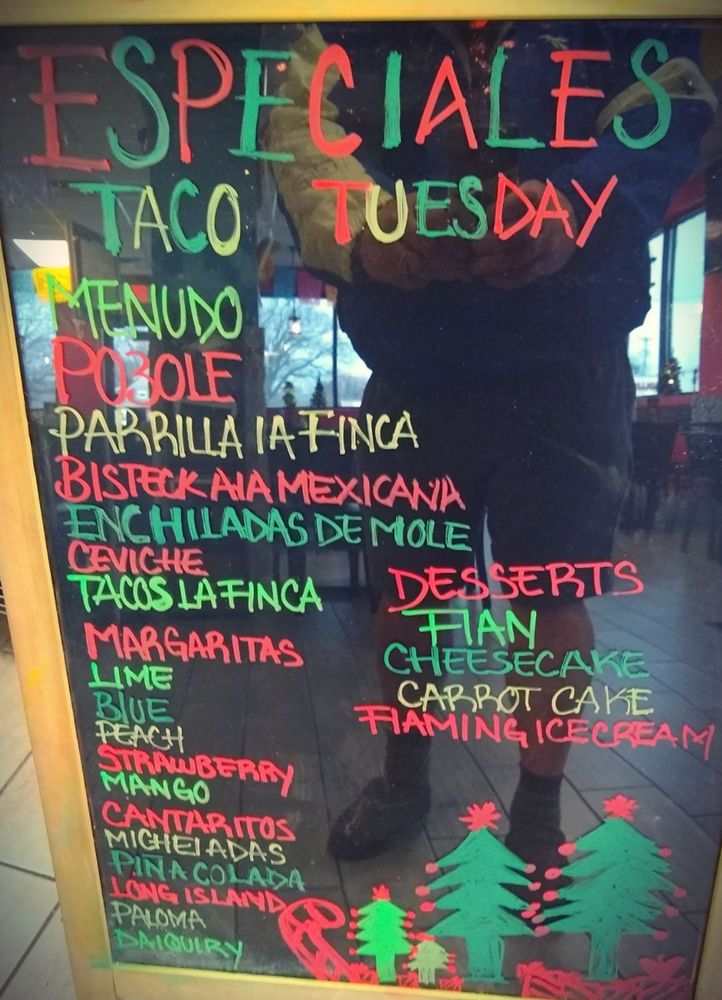 ESPECIALES
TACO TUESDAY
MENUDO
POZOLE
PARRILLA LA FINCA
BISTECK A LA MEXICANA
ENCHILADAS DE MOLE
CEVICHE
TACOS LA FINCA
MARGARITAS
LIME
BLUE
PEACH
STRAWBERRY
MANGO
CANTARITOS
MICHELADAS
PIÑA COLADA
LONG ISLAND
PALOMA
DAIQUIRY
DESSERTS
FLAN
CHEESECAKE
CARROT CAKE
FLAMING ICECREAM